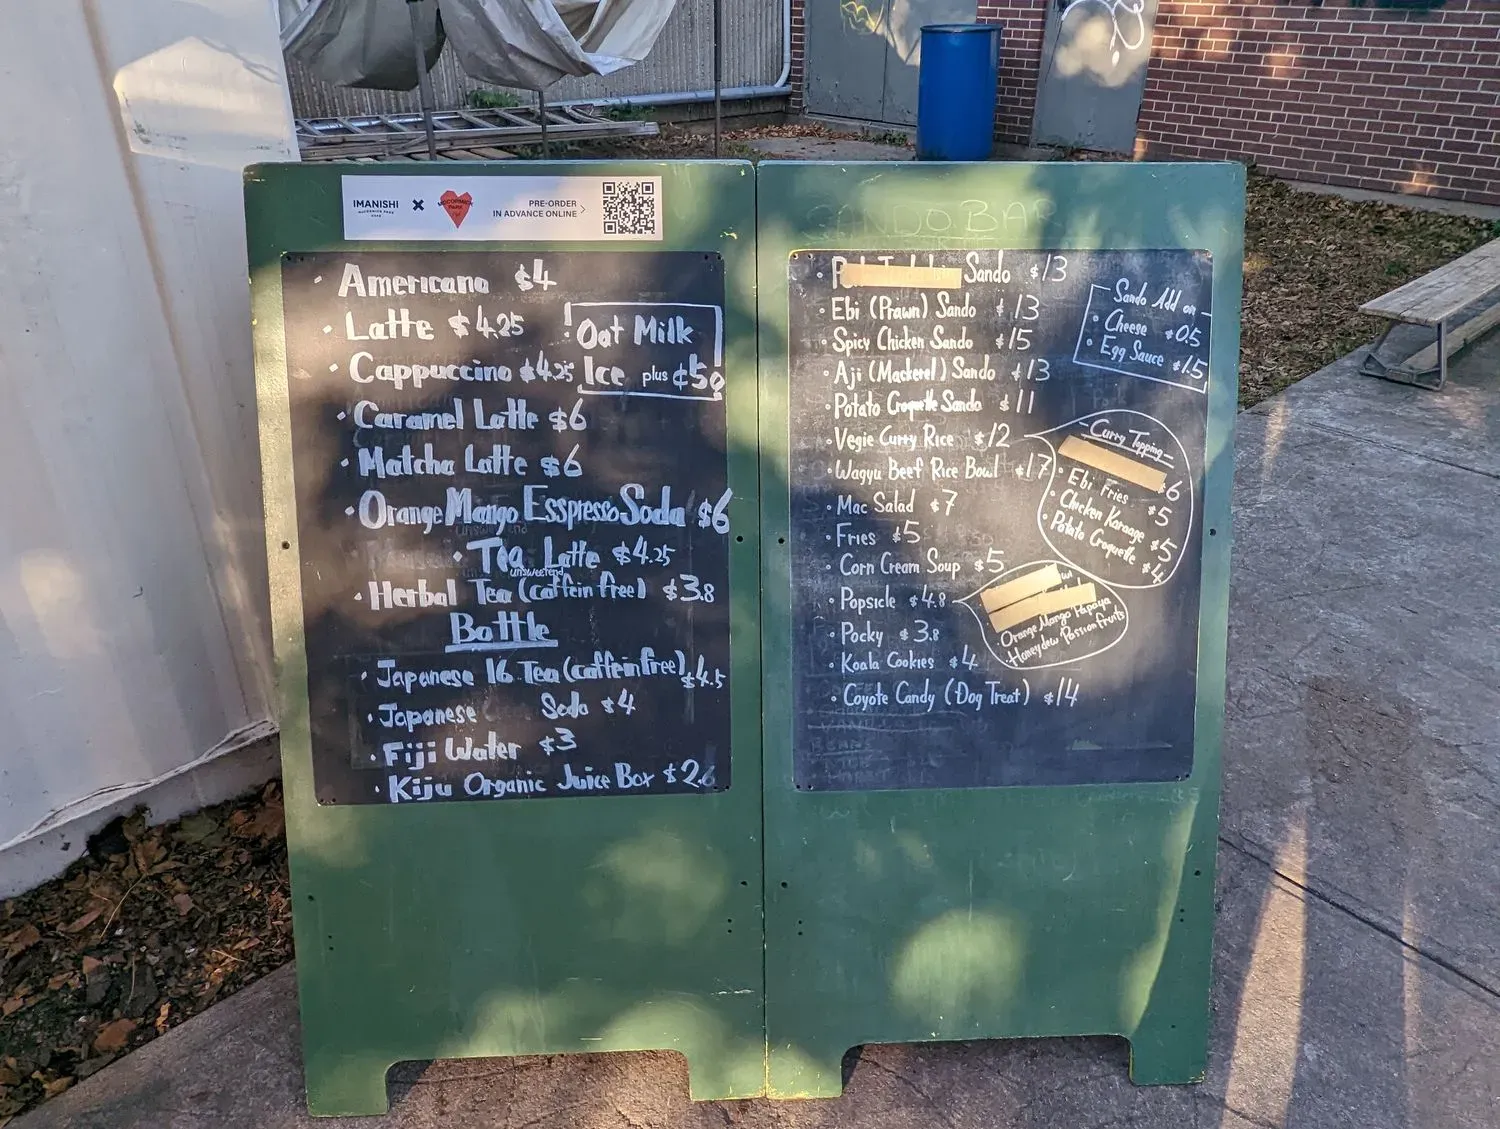 IMANISHI
MCCORMICK PARK
CAFE
×
MCCORMICK
PARK
PRE-ORDER
IN ADVANCE ONLINE >
· Americano $4
· Latte $4.25
· Cappuccino $4.25
! Oat Milk
Ice plus ¢50
· Caramel Latte $6
· Matcha Latte $6
· Orange Mango Esspresso Soda $6
· Tea Latte $4.25
unsweetend
· Herbal Tea (caffein free) $3.8
Bottle
· Japanese 16 Tea (caffein free) $4.5
· Japanese Soda $4
· Fiji Water $3
· Kiju Organic Juice Box $2.6
SANDO BAR
· Sando $13
· Ebi (Prawn) Sando $13
· Spicy Chicken Sando $15
· Aji (Mackerel) Sando $13
· Potato Croquette Sando $11
· Vegie Curry Rice $12
· Wagyu Beef Rice Bowl $17
· Mac Salad $7
· Fries $5
· Corn Cream Soup $5
· Popsicle $4.8
· Pocky $3.8
· Koala Cookies $4
· Coyote Candy (Dog Treat) $14
Sando Add on
· Cheese $0.5
· Egg Sauce $1.5
- Curry Topping -
$6
· Ebi Fries $5
· Chicken Karaage $5
· Potato Croquette $4
Orange Mango Papaya
Honeydew Passion fruits